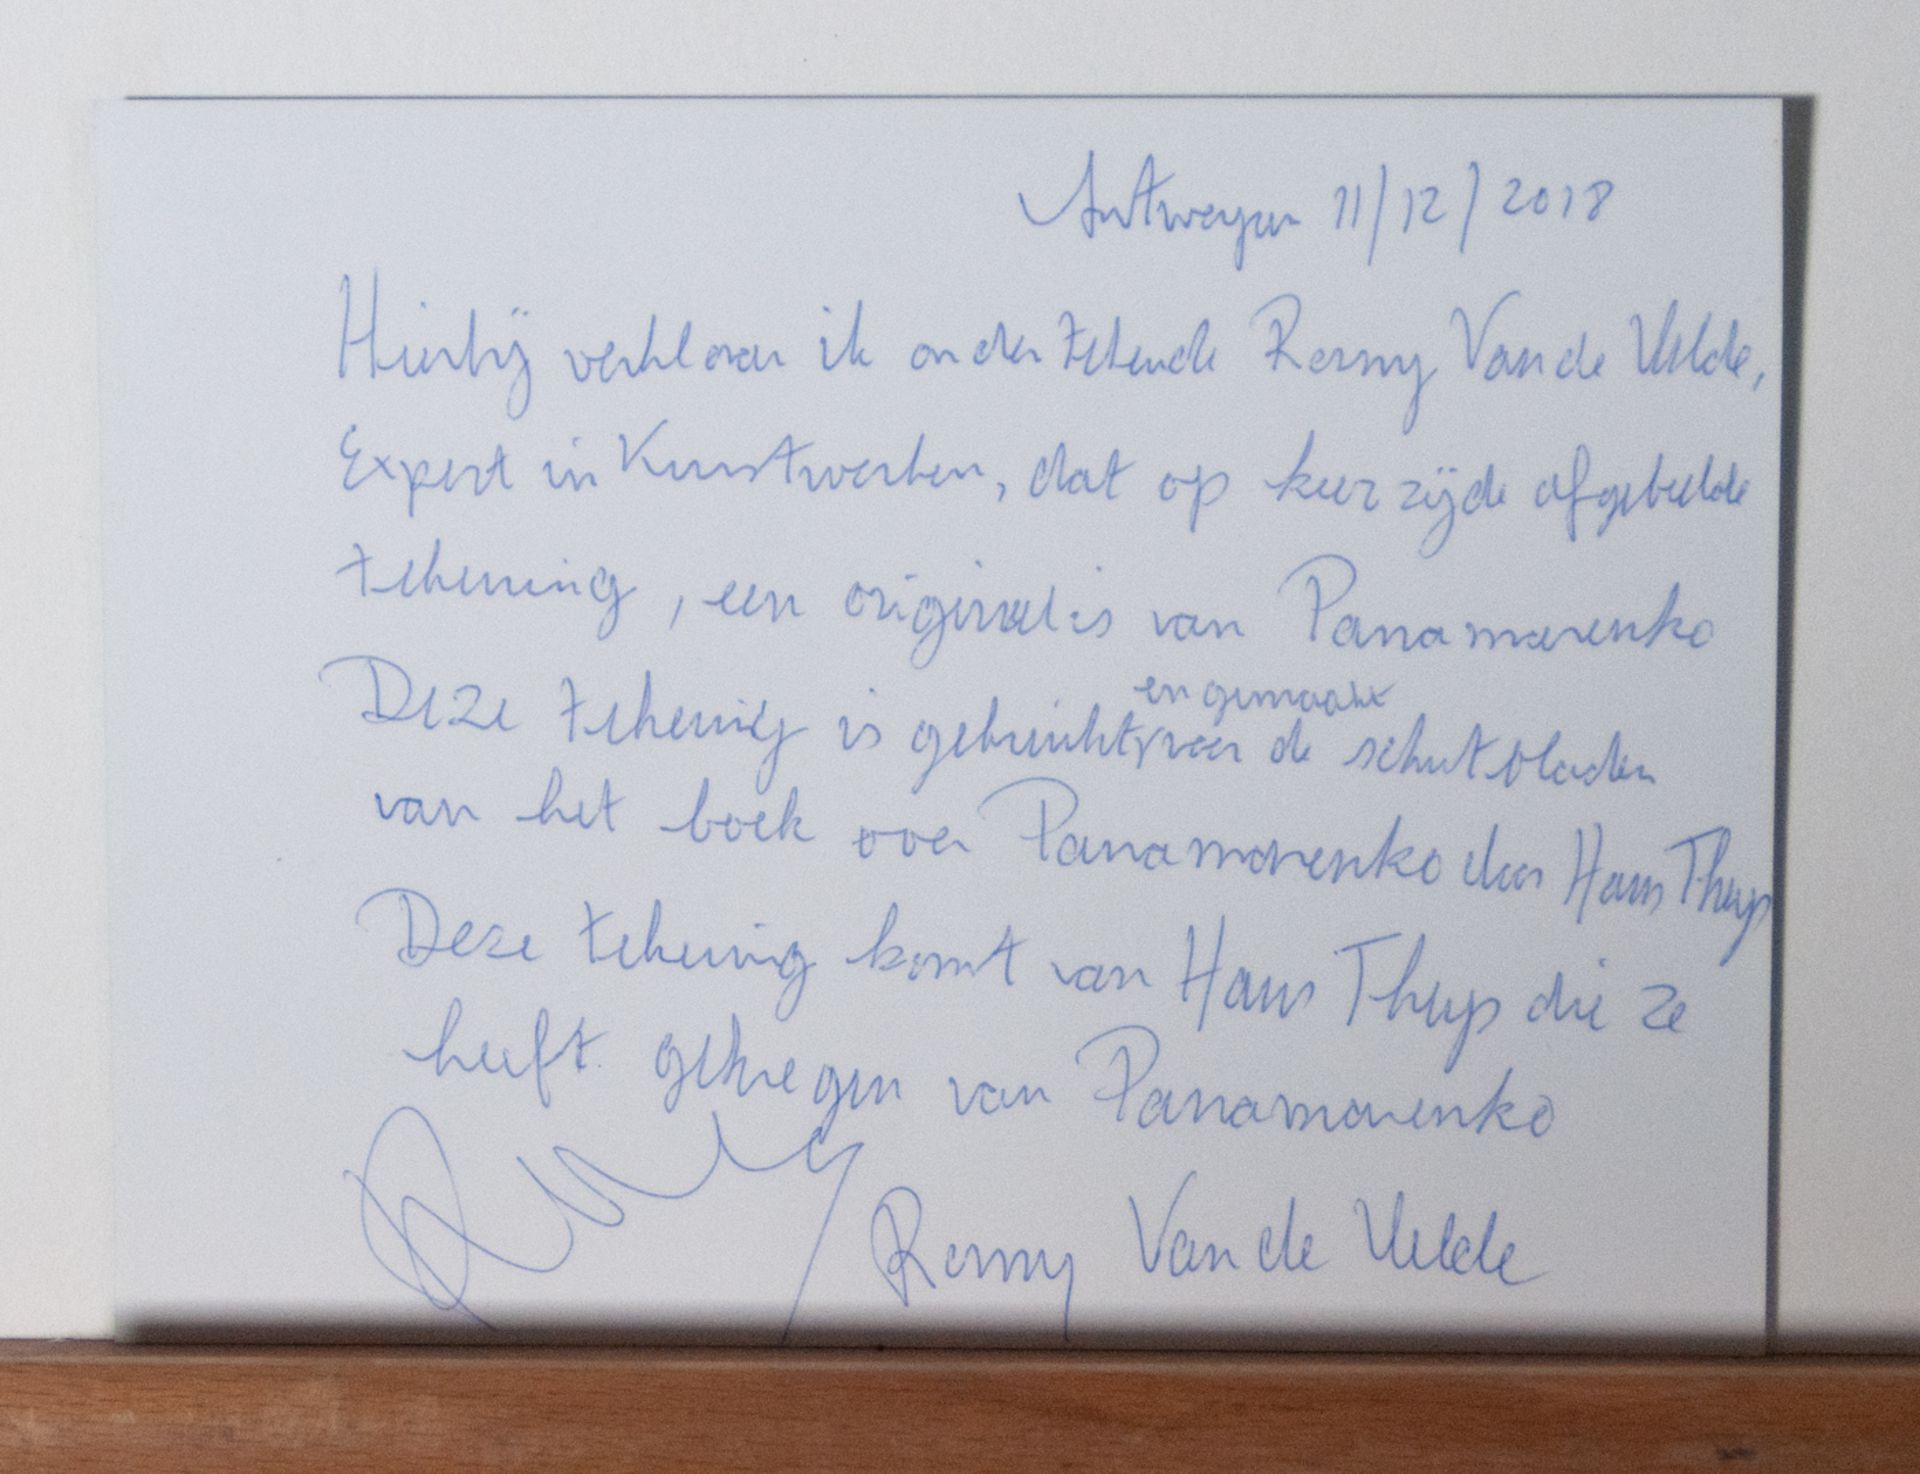 Antwerpen 11/12/2018
Hierbij verklaar ik ondertekende Ronny Van de Velde,
Expert in Kunstwerken, dat op keerzijde afgebeelde
tekening, een origineel is van Panamarenko
en gemaakt
Deze tekening is gebruikt voor de schutbladen
van het boek over Panamarenko door Hans Theys
Deze tekening komt van Hans Theys die ze
heeft gekregen van Panamarenko
Ronny Van de Velde